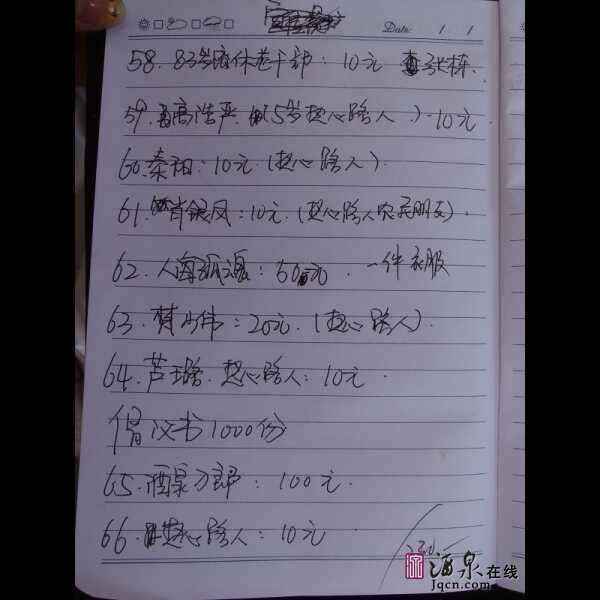 Date: 1 1
58. 83岁离休老干部: 10元 张栋.
59. 高浩严 5岁热心路人.) 10元
60. 秦 : 10元 (热心路人).
61. 肖银凤: 10元. (热心路人农民朋友).
62. 人海孤魂: 60元. 一件衣服
63. 樊小伟: 20元. (热心路人).
64. 芦璐. 热心路人: 10元.
倡议书1000份
65. 酒泉刀郎: 100元.
66. 热心路人: 10元.
酒泉在线
Jqcn.com